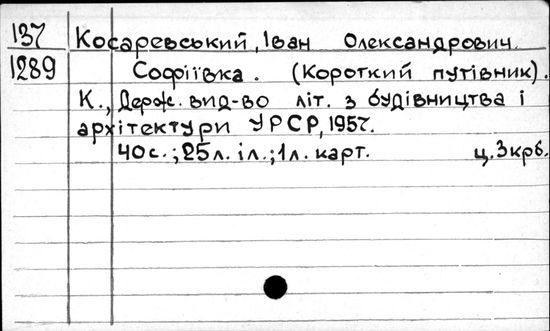 137 Косаревський, Іван Олександрович.
1289 Софіївка. (Короткий путівник).
К., Держ. вид-во літ. з будівництва і
архітектури УРСР, 1957.
40с.; 25л. іл.; 1л. карт. ц. 3крб.